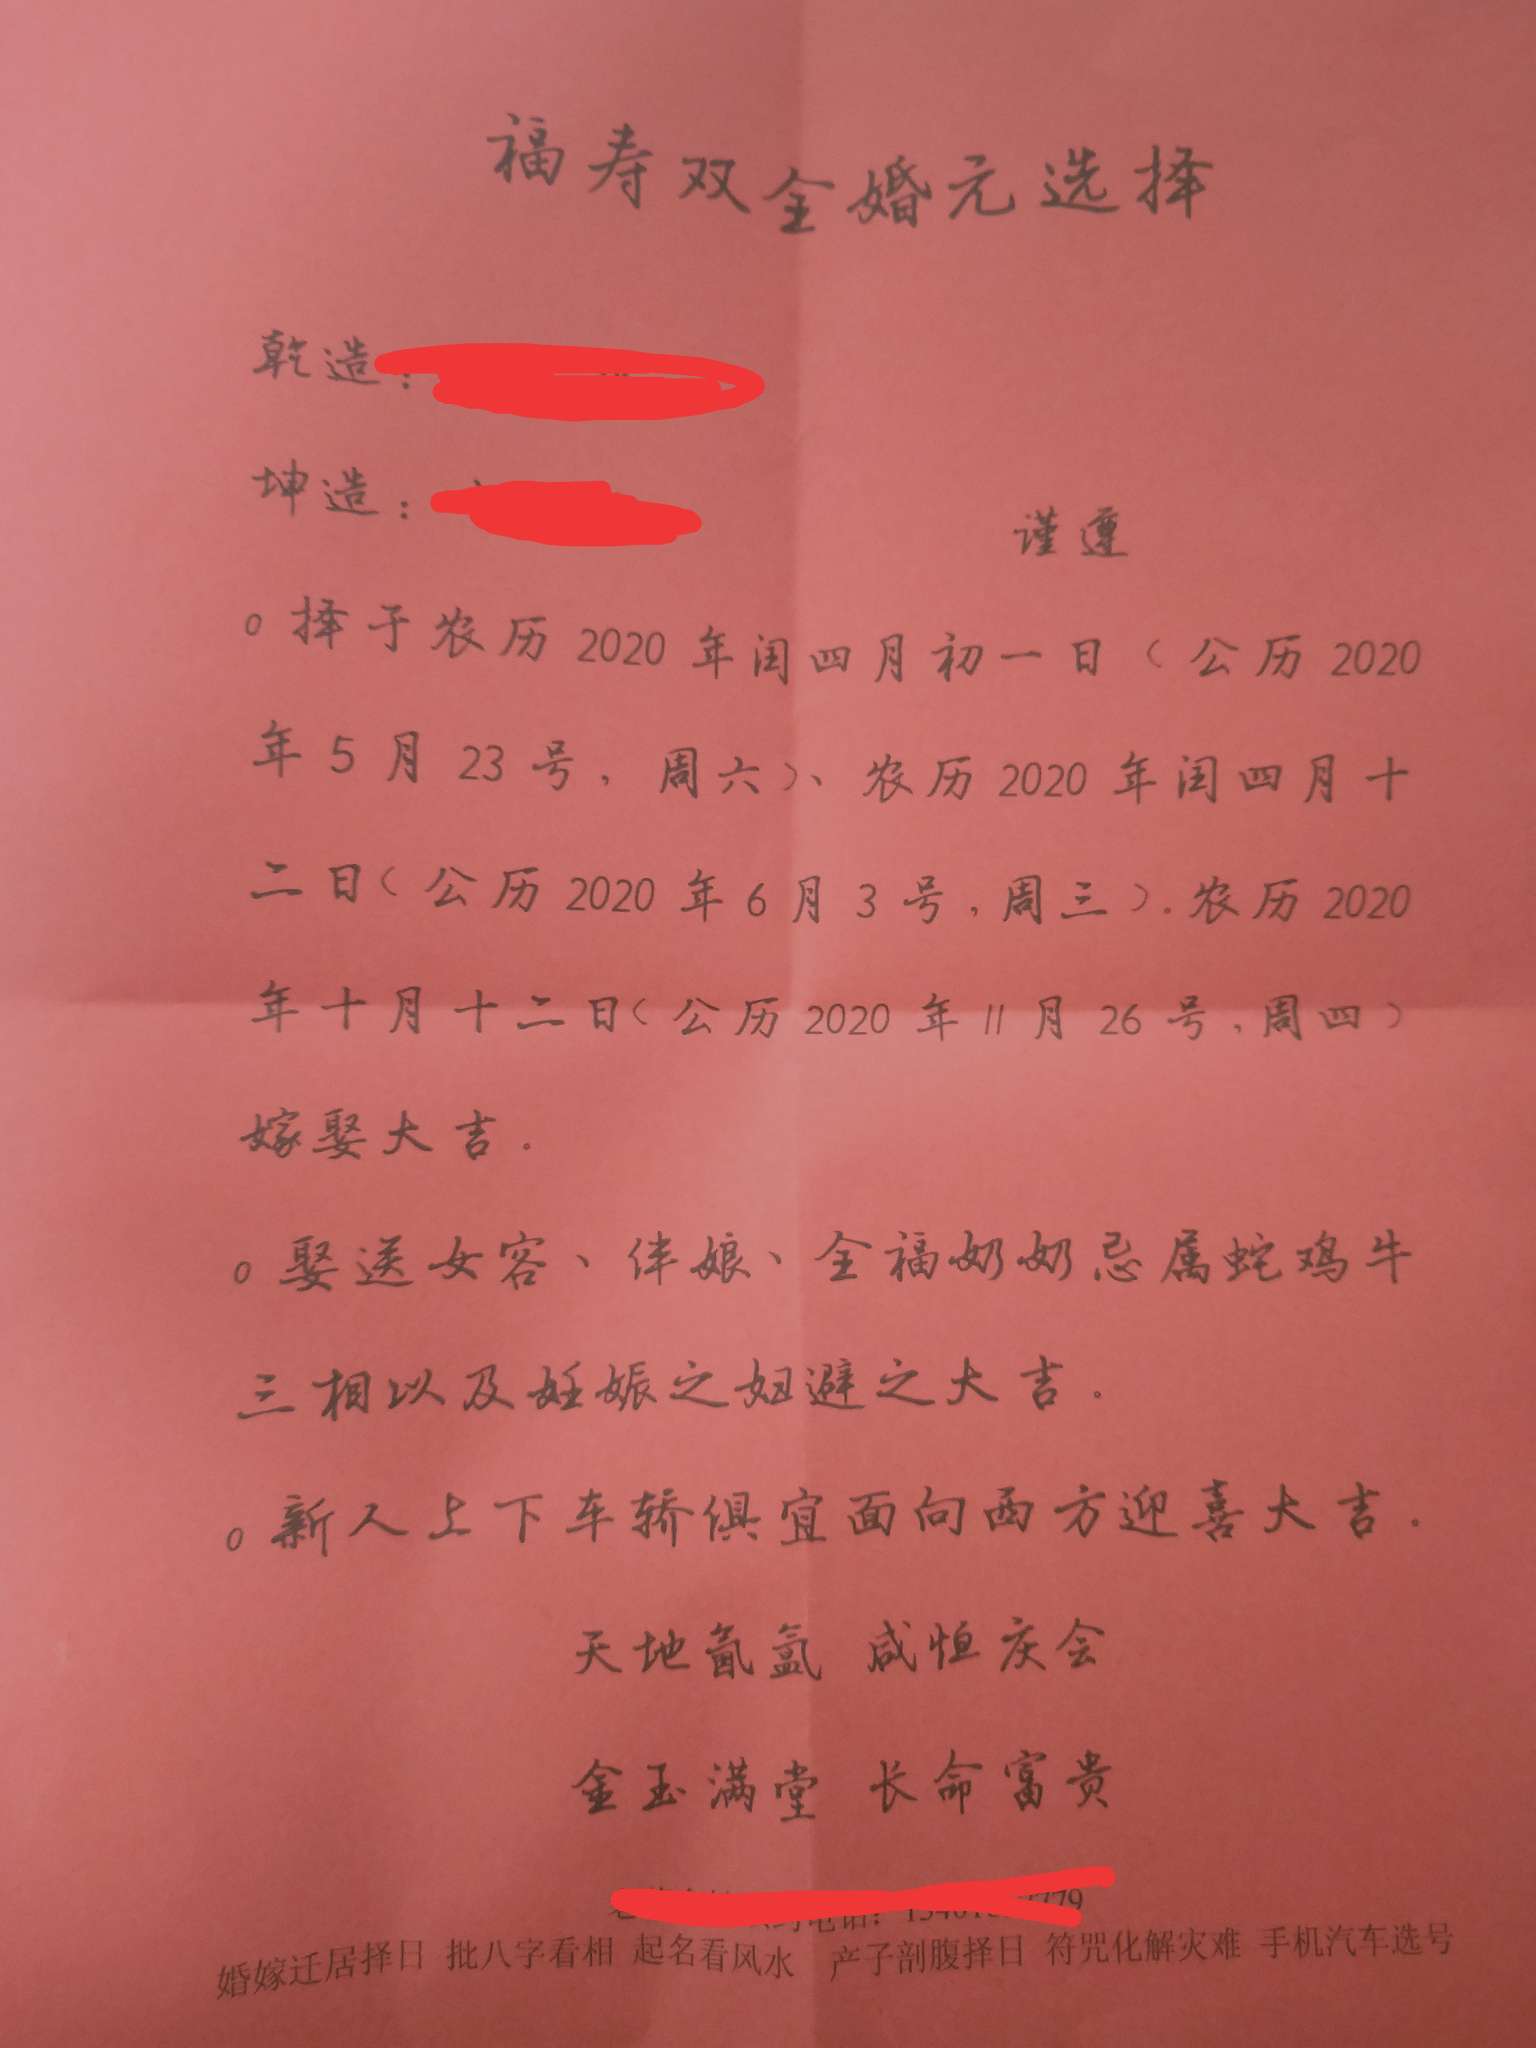 福寿双全婚元选择
乾造：
坤造：
谨遵
。择于农历2020年闰四月初一日（公历2020
年5月23号，周六）、农历2020年闰四月十
二日（公历2020年6月3号，周三）.农历2020
年十月十二日（公历2020年11月26号，周四）
嫁娶大吉.
。娶送女客、伴娘、全福奶奶忌属蛇鸡牛
三相以及妊娠之妇避之大吉.
。新人上下车轿俱宜面向西方迎喜大吉.
天地氤氲 咸恒庆会
金玉满堂 长命富贵
婚嫁迁居择日 批八字看相 起名看风水 产子剖腹择日 符咒化解灾难 手机汽车选号